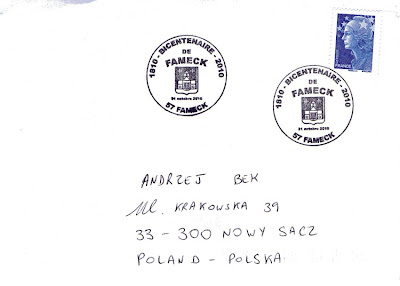 1810 - BICENTENAIRE - 2010
DE
FAMECK
57 FAMECK
1810 - BICENTENAIRE - 2010
DE
FAMECK
57 FAMECK
FRANCE
ANDRZEJ BEK
Ul. KRAKOWSKA 39
33-300 NOWY SACZ
POLAND - POLSKA